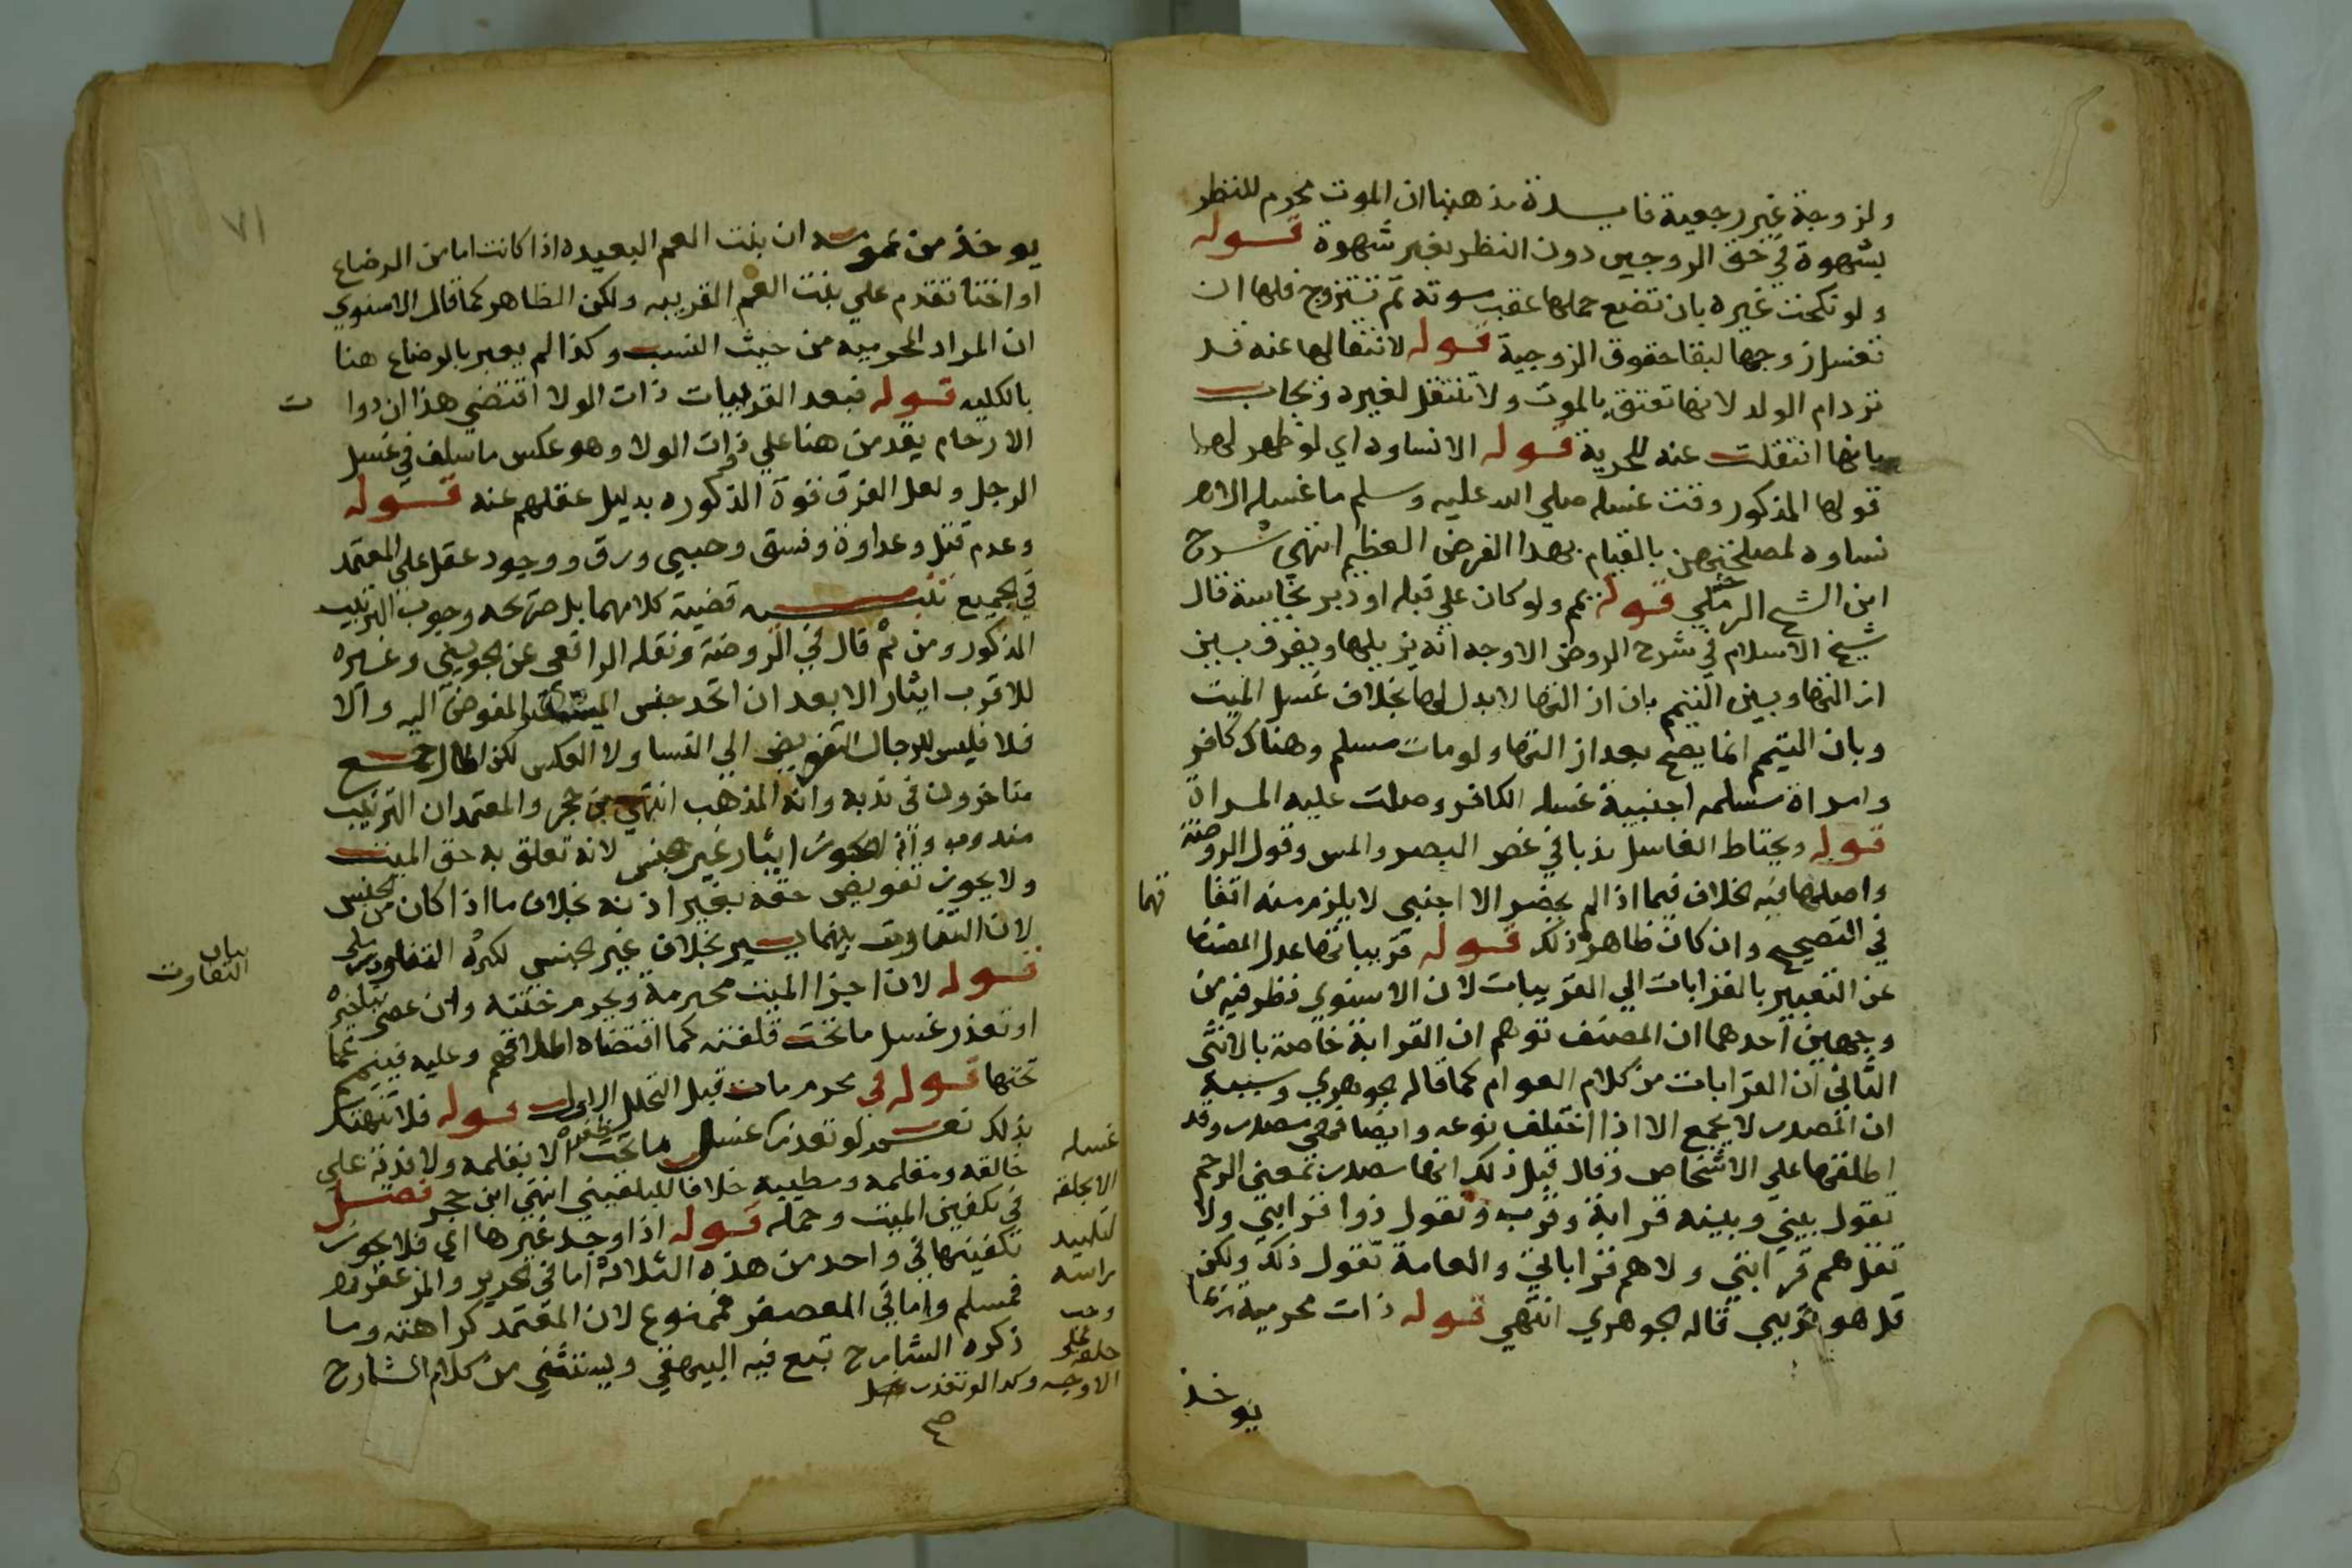 ولزوجة غير رجعية فايسدة مذهبنا ان الموت محرم للنظر
بشهوة في حق الزوجين دون النظر بغير شهوة قوله
ولو نكحت غيره بان تضع حملها عقب موته ثم تتزوج فلها ان
تغسل زوجها لبقا حقوق الزوجية قوله لانتقالها عنه قد
ترد ام الولد لانها تعتق بالموت ولا تنتقل لغيره ويجاب
بانها انتقلت عنه للحرية قوله الا نساوه اي لو ظهر لها
قولها المذكور وقت غسله صلي الله عليه وسلم ما غسله الا
نساوه لمصلحتهن بالقيام بهذا الفرض العظيم انتهي شرح
ابن الشيخ الرملي قوله يمم ولو كان علي قبله او دبر نجاسة قال
شيخ الاسلام في شرح الروض الاوجه انه يزيلها ويفرق بين
ازالتها وبين التيمم بان ازالتها لا بدل لها بخلاف غسل الميت
وبان التيمم انما يصح بعد ازالتها ولو مات مسلم وهناك كافر
وامراة مسلمه اجنبية غسله الكافر وصلت عليه المراة
قوله ويحتاط الغاسل ندبا في غض البصر والمس وقول الروضة
واصلها فيه بخلاف فيما اذا لم يحضر الا اجنبي لا يلزم منه اتفا قهما
في التصحيح وان كان ظاهره ذلك قوله قريباتها عدل المصنف
عن التعبير بالقرابات الي القريبات لان الاسنوي نظر فيه من
وجهين احدهما ان المصنف توهم ان القرابة خاصة بالانثي
الثاني ان القرابات من كلام العوام كما قاله الجوهري وسببه
ان المصدر لا يجمع الا اذا اختلف نوعه وايضا فهي مصدر وقد
اطلقها علي الاشخاص وقال قبل ذلك انها مصدر بمعني الرحم
تقول بيني وبينه قرابة وقرب وتقول ذوا قرابتي ولا
تقل هم قرابتي ولا هم قراباتي والعامة تقول ذلك ولكن
قل هو قريبي قاله الجوهري انتهي قوله ذات محرمية
يوخذ
٧١
يوخذ من ان بنت العم البعيده اذا كانت اما من الرضاع
او اختا تقدم علي بنت العم القريبه ولكن الظاهر كما قال الاسنوي
ان المراد المحرميه من حيث النسب وكذا لم يعبر بالرضاع هنا
بالكليه قوله فبعد القريبات ذات الولا اقتضي هذا ان ذوات
الارحام يقدمن هنا علي ذوات الولا وهو عكس ما سلف في غسل
الرجل ولعل الفرق قوة الذكوره بدليل عقلهم عنه قوله
وعدم قتل وعداوة وفسق وصبي ورق ووجود عقل علي المعتمد
في الجميع تنبيه قضية كلامهما بل صريحه وجوب الترتيب
المذكور ومن ثم قال في الروضة ونقله الرافعي عن الجويني وغيره
للاقرب ايثار الابعد ان اتحد جنس المفوض اليه والا
فلا فليس للرجال التفويض الي النسا ولا العكس لكن اطال جمع
متاخرون في ندبه وانه المذهب انتهي بن حجر والمعتمد ان الترتيب
مندوب وانه لا يجوز ايثار غير الجنس لانه تعلق به حق الميت
ولا يجوز تفويض حقه بغير اذنه بخلاف ما اذا كان من الجنس
لان التفاوت بينهما يسير بخلاف غير الجنس لكثرة التفاوت
بيان
التفاوت
قوله لان اجزا الميت محترمة ويحرم ختنه وان عصي بتاخيره
او تعذر غسل ما تحت قلفته كما اقتضاه اطلاقهم وعليه فييمم عما
تحتها قوله في محرم مات قبل التحلل الاول قوله فلا تنتهك
بذلك نعم لو تعذر غسل ما تحت ظفره الا بقلمه ولا فدية علي
حالقه ومقلمه ومطيبه خلافا للبلقيني انتهي ابن حجر فصل
في تكفين الميت وحمله قوله اذا وجد غيرها اي فلا يجوز
تكفينها في واحد من هذه الثلاثة اما في الحرير والمزعفر
فمسلم واما في المعصفر فممنوع لان المعتمد كراهته وما
ذكره الشارح تبع فيه البيهقي ويستثني من كلام الشارح
غسله
الا بحلق
لتلبيد
راسه
وجب
حلقه علي
الاوجه وكذا لو تعذر غسل
صح